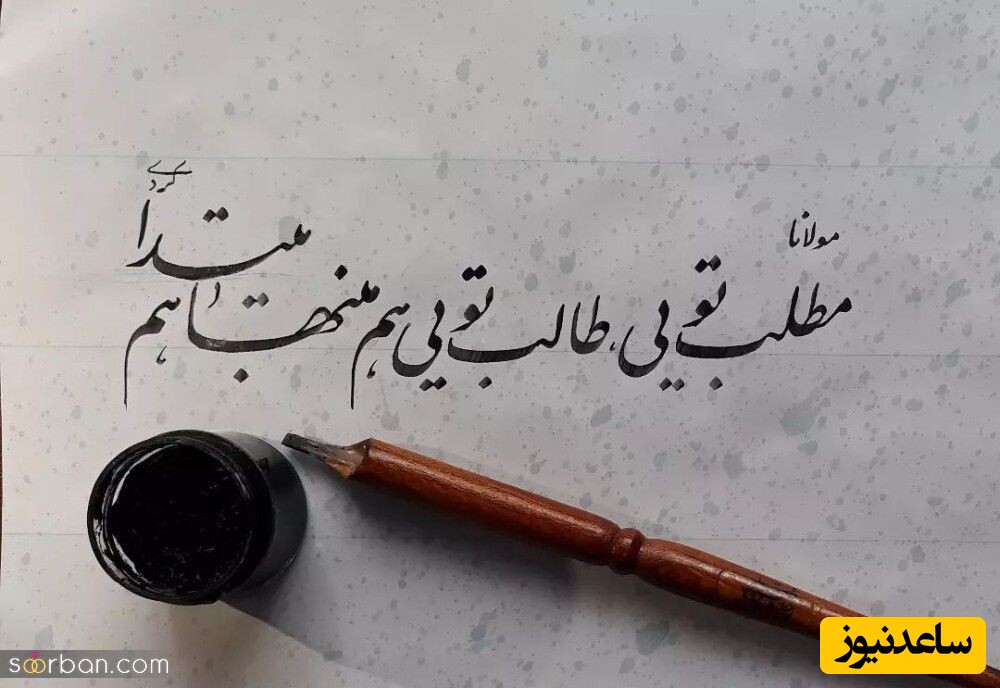 مولانا
مطلب تویی، طالب تویی هم منتها هم مبتدا
ساعدنیوز
soorban.com